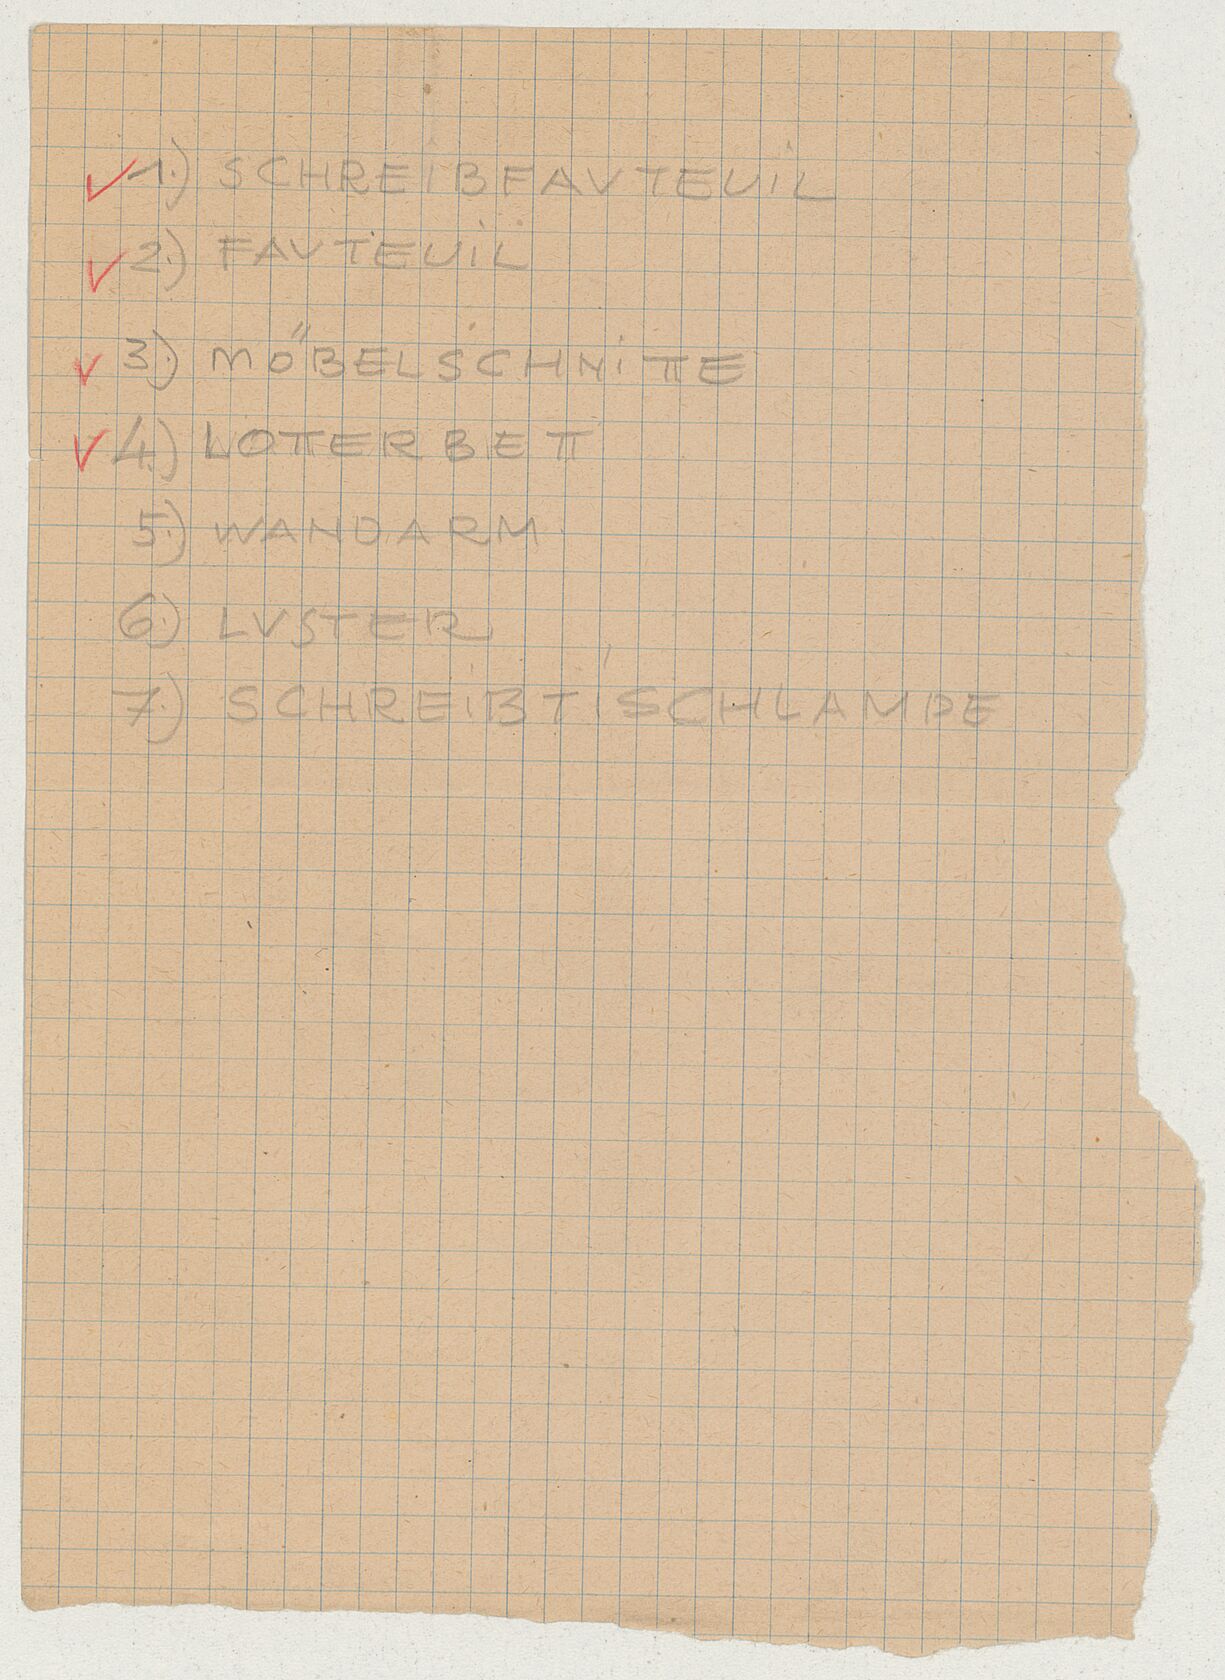 ✓ 1.) SCHREIBFAVTEUIL
✓ 2.) FAVTEUIL
✓ 3.) MÖBELSCHNITTE
✓ 4.) LOTTERBETT
5.) WANDARM
6.) LVSTER
7.) SCHREIBTISCHLAMPE